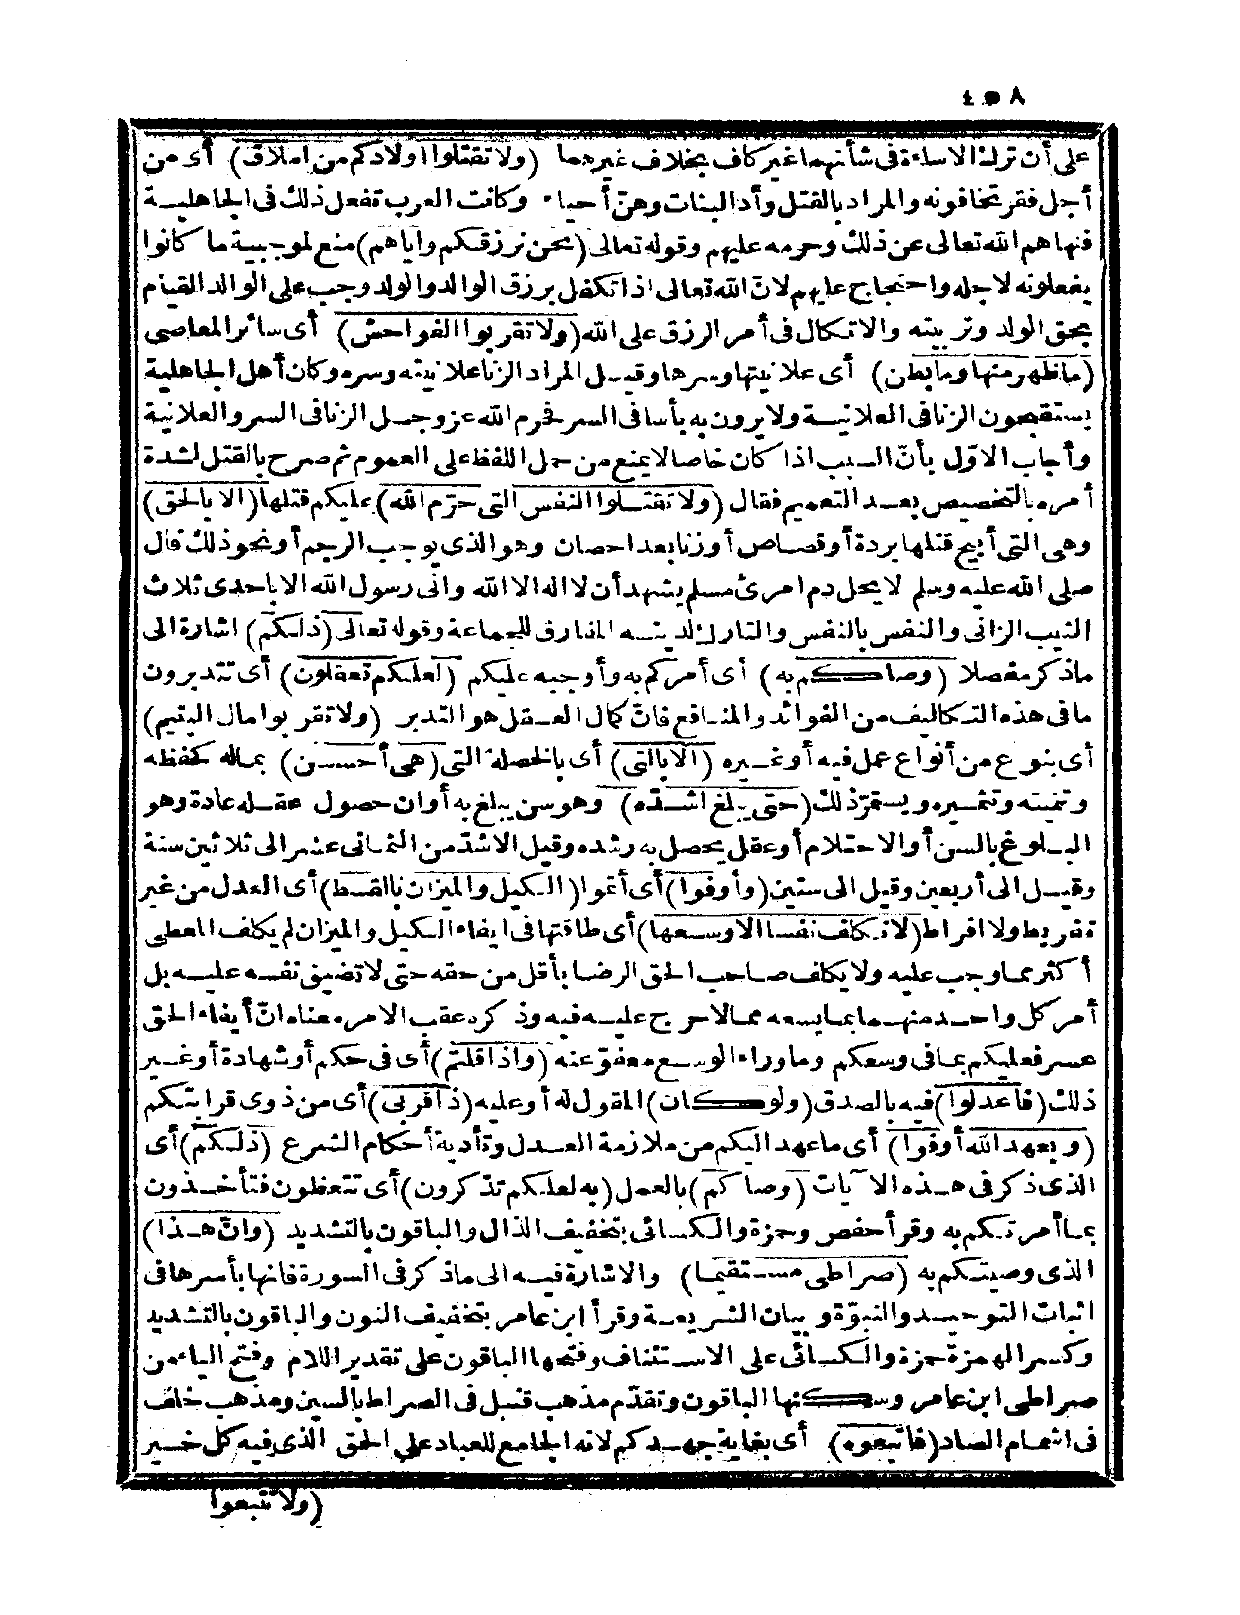 ٤٥٨
على أن ترك الاساءة فى شأنهما غير كاف بخلاف غيرهما (ولا تقتلوا اولادكم من املاق) أى من
أجل فقر تخافونه والمراد بالقتل وأد البنات وهنّ أحياء وكانت العرب تفعل ذلك فى الجاهلية
فنهاهم الله تعالى عن ذلك وحرمه عليهم وقوله تعالى (نحن نرزقكم واياهم) منع لموجبية ما كانوا
يفعلونه لاجله واحتجاج عليهم لانّ الله تعالى اذا تكفل برزق الوالد والولد وجب على الوالد القيام
بحق الولد وتربيته والاتكال فى أمر الرزق على الله (ولا تقربوا الفواحش) أى سائر المعاصى
(ما ظهر منها وما بطن) أى علانيتها وسرها وقيل المراد الزنا علانيته وسره وكان أهل الجاهلية
يستقبحون الزنا فى العلانية ولا يرون به بأسا فى السر فحرم الله عز وجل الزنا فى السر والعلانية
وأجاب الاوّل بأنّ السبب اذا كان خاصا لا يمنع من حمل اللفظ على العموم ثم صرح بالقتل لشدة
أمره بالتخصيص بعد التعميم فقال (ولا تقتلوا النفس التى حرّم الله) عليكم قتلها (الا بالحق)
وهى التى أبيح قتلها بردة أو قصاص أو زنا بعد احصان وهو الذى يوجب الرجم أو نحو ذلك قال
صلى الله عليه وسلم لا يحل دم امرئ مسلم يشهد أن لا اله الا الله وانى رسول الله الا باحدى ثلاث
الثيب الزانى والنفس بالنفس والتارك لدينه المفارق للجماعة وقوله تعالى (ذلكم) اشارة الى
ما ذكر مفصلا (وصاكم به) أى أمركم به وأوجبه عليكم (لعلكم تعقلون) أى تتدبرون
ما فى هذه التكاليف من الفوائد والمنافع فانّ كمال العقل هو التدبر (ولا تقربوا مال اليتيم)
أى بنوع من أنواع عمل فيه أو غيره (الا بالتى) أى بالخصلة التى (هى أحسن) بماله كحفظه
وتنميته وتثميره ويستمرّ ذلك (حتى يبلغ اشدّه) وهو سن يبلغ به أوان حصول عقله عادة وهو
البلوغ بالسن أو الاحتلام أو عقل يحصل به رشده وقيل الاشدّ من الثمانى عشر الى ثلاثين سنة
وقيل الى أربعين وقيل الى ستين (وأوفوا) أى أتموا (الكيل والميزان بالقسط) أى العدل من غير
تفريط ولا افراط (لا نكلف نفسا الا وسعها) أى طاقتها فى ايفاء الكيل والميزان لم يكلف المعطى
أكثر مما وجب عليه ولا يكلف صاحب الحق الرضا بأقل من حقه حتى لا تضيق نفسه عليه بل
أمر كل واحد منهما بما يسعه مما لا حرج عليه فيه وذكره عقب الامر معناه انّ أيفاء الحق
عسر فعليكم بما فى وسعكم وما وراء الوسع معفوّ عنه (واذا قلتم) أى فى حكم أو شهادة أو غير
ذلك (فاعدلوا) فيه بالصدق (ولو كان) المقول له أو عليه (ذا قربى) أى من ذوى قرابتكم
(وبعهد الله أوفوا) أى ما عهد اليكم من ملازمة العدل وتأدية أحكام الشرع (ذلكم) أى
الذى ذكر فى هذه الآيات (وصاكم) بالعمل (به لعلكم تذكرون) أى تتعظون فتأخذون
بما أمرتكم به وقرأ حفص وحمزة والكسائى بتخفيف الذال والباقون بالتشديد (وانّ هذا)
الذى وصيتكم به (صراطى مستقيما) والاشارة فيه الى ما ذكر فى السورة فانها بأسرها فى
اثبات التوحيد والنبوّة وبيان الشريعة وقرأ ابن عامر بتخفيف النون والباقون بالتشديد
وكسر الهمزة حمزة والكسائى على الاستئناف وفتحها الباقون على تقدير اللام وفتح الياء من
صراطى ابن عامر وسكنها الباقون وتقدّم مذهب قنبل فى الصراط بالسين ومذهب خلف
فى اشمام الصاد (فاتبعوه) أى بغاية جهدكم لانه الجامع للعباد على الحق الذى فيه كل خير
(ولا تتبعوا